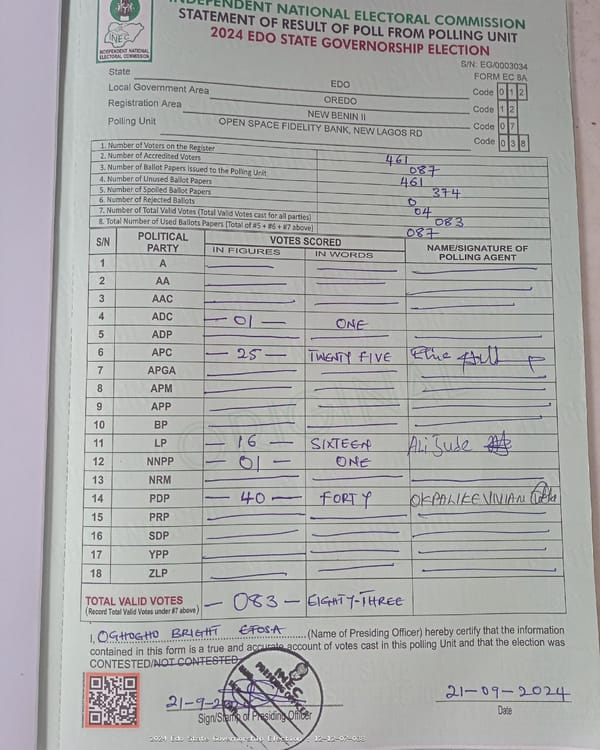 INDEPENDENT NATIONAL ELECTORAL COMMISSION
STATEMENT OF RESULT OF POLL FROM POLLING UNIT
2024 EDO STATE GOVERNORSHIP ELECTION
INEC
INDEPENDENT NATIONAL
ELECTORAL COMMISSION
S/N: EG/0003034
FORM EC 8A
State EDO Code 0 1 2
Local Government Area OREDO Code 1 2
Registration Area NEW BENIN II Code 0 7
Polling Unit OPEN SPACE FIDELITY BANK, NEW LAGOS RD Code 0 3 8
1. Number of Voters on the Register 461
2. Number of Accredited Voters 087
3. Number of Ballot Papers issued to the Polling Unit 461
4. Number of Unused Ballot Papers 374
5. Number of Spoiled Ballot Papers 0
6. Number of Rejected Ballots 04
7. Number of Total Valid Votes (Total Valid Votes cast for all parties) 083
8. Total Number of Used Ballots Papers (Total of #5 + #6 + #7 above) 087
S/N POLITICAL PARTY VOTES SCORED NAME/SIGNATURE OF POLLING AGENT
IN FIGURES IN WORDS
1 A
2 AA
3 AAC
4 ADC - 01 - ONE
5 ADP
6 APC - 25 - TWENTY FIVE
7 APGA
8 APM
9 APP
10 BP
11 LP - 16 - SIXTEEN Ali Jude
12 NNPP - 01 - ONE
13 NRM
14 PDP - 40 - FORTY OKPALIKE VIVIAN
15 PRP
16 SDP
17 YPP
18 ZLP
TOTAL VALID VOTES - 083 - EIGHTY-THREE
(Record Total Valid Votes under #7 above)
I, OGHOGHO BRIGHT EFOSA (Name of Presiding Officer) hereby certify that the information
contained in this form is a true and accurate account of votes cast in this polling Unit and that the election was
CONTESTED/NOT CONTESTED
INEC
21-9-2024 21-09-2024
Sign/Stamp of Presiding Officer Date
2024 Edo State Governorship Election - 12-12-07-038